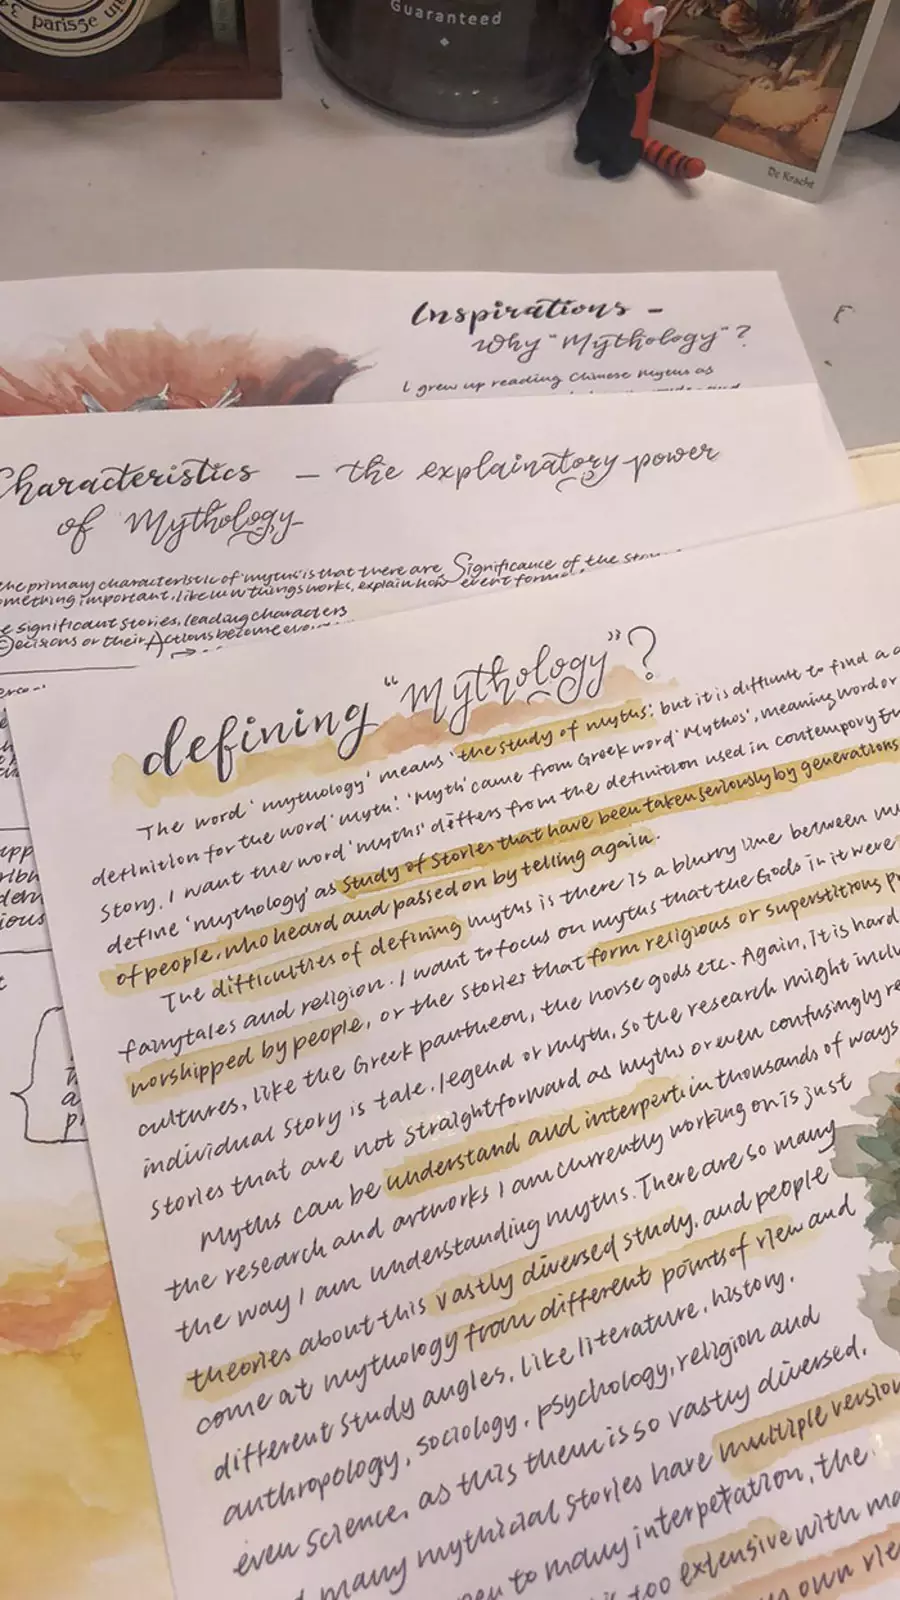 parisse
Guaranteed
De Kracht
Inspirations –
Why "Mythology"?
I grew up reading Chinese Myths as
Characteristics – the explainatory power
of Mythology
the primary characteristic of 'myths' is that there are Significance of the
something important, like how things works, explain how event
significant stories, leading characters
Decisions or their Actions become
defining "Mythology"?
The word 'mythology' means 'the study of myths', but it is difficult to find a
definition for the word 'myth'. 'Myth' came from Greek word 'Mythos', meaning word or
Story. I want the word 'myths' differs from the definition used in contempory
define 'mythology' as Study of Stories that have been taken seriously by generations
of people, who heard and passed on by telling again.
The difficulties of defining myths is there is a blurry line between
fairytales and religion. I want to focus on myths that the Gods in it were
worshipped by people, or the stories that form religious or superstitious
cultures, like the Greek pantheon, the norse gods etc. Again, it is hard
individual story is tale, legend or myth, so the research might
stories that are not straightforward as myths or even confusingly
Myths can be understand and interpert in thousands of ways
the research and artworks I am currently working on is just
the way I am understanding myths. There are so many
theories about this vastly diversed study, and people
come at mythology from different points of view and
different study angles, like literature, history,
anthropology, sociology, psychology, religion and
even Science, as this them is so vastly diversed,
many mythicial stories have multiple
to many interpetation, the
too extensive with
own